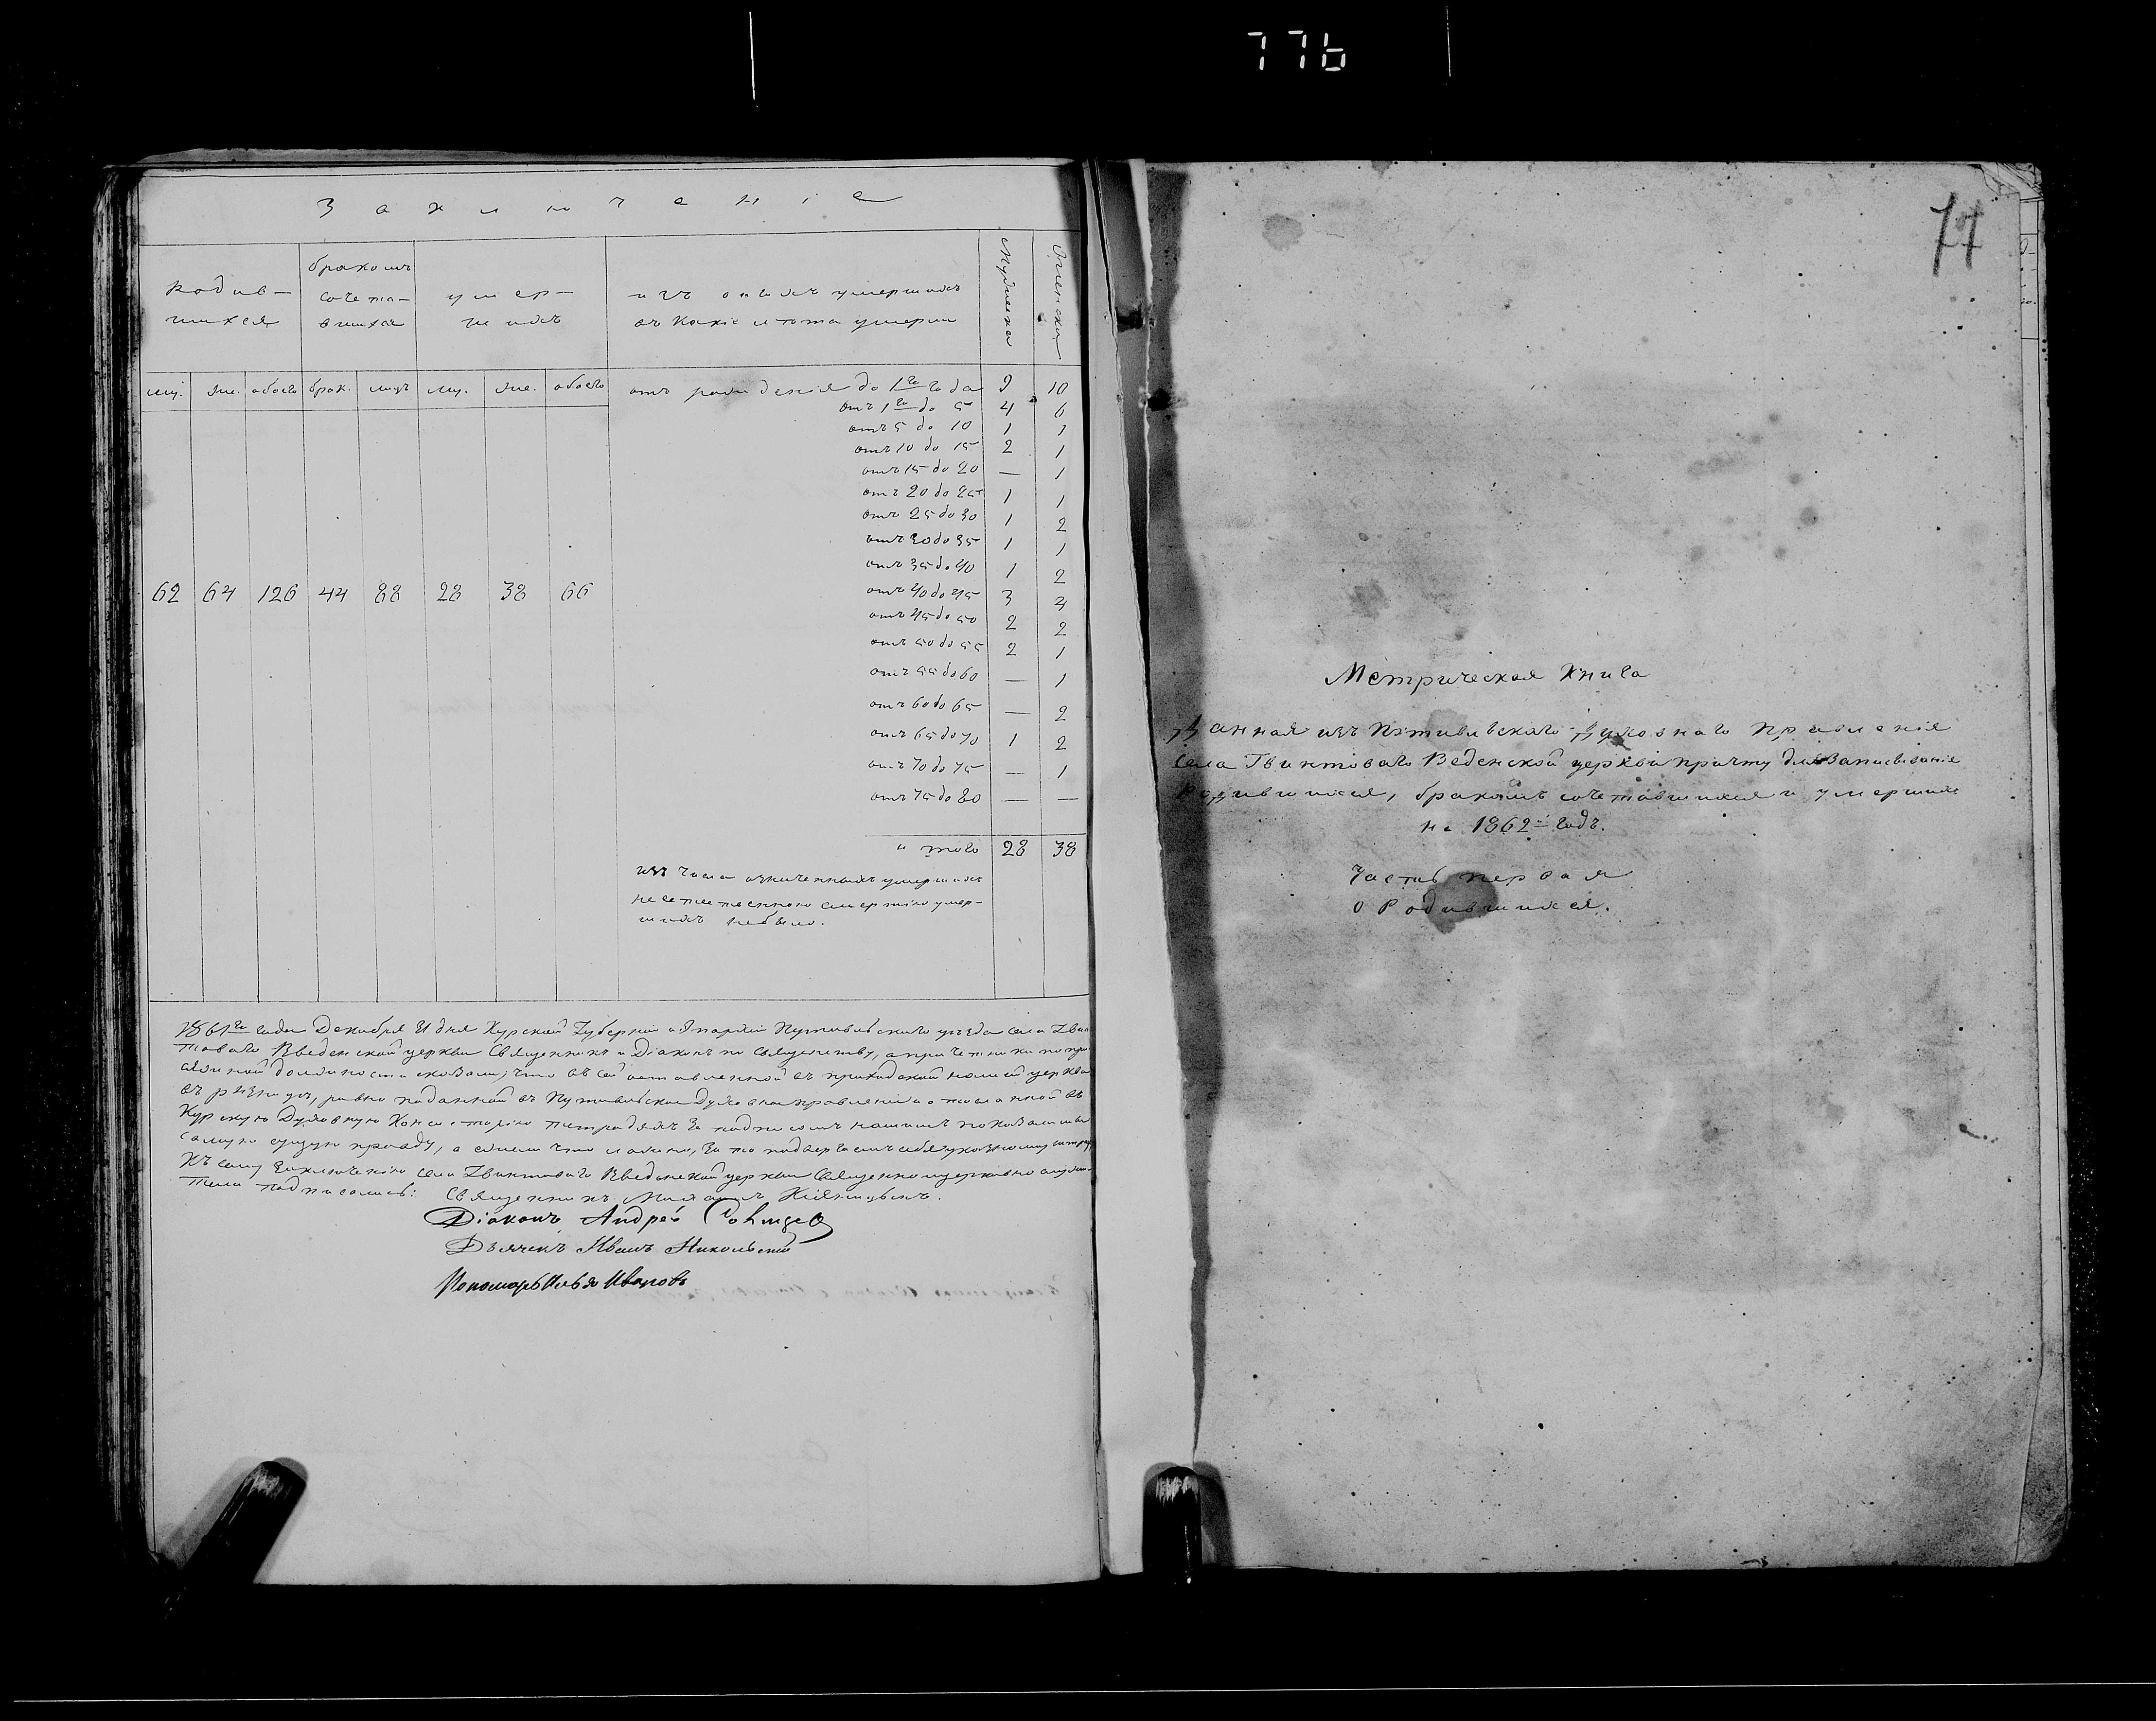 776
Заключеніе
родив-
шихся
бракомъ
сочета-
вшихся
умер-
шихъ
изъ онихъ умершихъ
въ какіе лета умерли
Мужеска
Женска
му. же. обоего брак. лицъ му. же. обоего
отъ рожденія до 1го года 9 10
отъ 1го до 5 4 6
отъ 5 до 10 1 1
отъ 10 до 15 2 1
отъ 15 до 20 — 1
отъ 20 до 25 1 1
отъ 25 до 30 1 2
отъ 30 до 35 1 1
отъ 35 до 40 1 2
отъ 40 до 45 3 4
отъ 45 до 50 2 2
отъ 50 до 55 2 1
отъ 55 до 60 — 1
отъ 60 до 65 — 2
отъ 65 до 70 1 2
отъ 70 до 75 — 1
отъ 75 до 80 — —
62 64 126 44 88 28 38 66
итого 28 38
изъ числа означенныхъ умершихъ
неестественною смертію умер-
шихъ небыло.
1861го года Декабря 31 дня Курской Губерніи и Епархіи Путивльскаго уезда села Гвин
товаго Введенской церкви Священникъ и Діаконъ по Священству, а причетники по при
сяжной должности сказали, что въ сей оставленной въ приходской нашей церкви
въ ризницу, равно поданной въ Путивльское Духовное правленіе и отосланной въ
Курскую Духовную Консисторію тетрадяхъ за подписомъ нашимъ показали мы
самую сущую правду, а ежели что ложно, за то подвергаемъ себя указному штра
Къ сему Заключенію села Гвинтоваго Введенской церкви Священноицерковнослужи-
тели подписались: Священникъ
Діаконъ Андрей
Дьячекъ Иванъ Никольскій
Пономарь Илья Иваровъ
77
Метрическая Книга
Данная изъ Путивльскаго Духовнаго Правленія
села Гвинтоваго Веденской церкви причту для Записыванія
Родившихся, бракомъ сочетавшихся и умершихъ
на 1862й годъ.
Часть первая
о Родившихся.